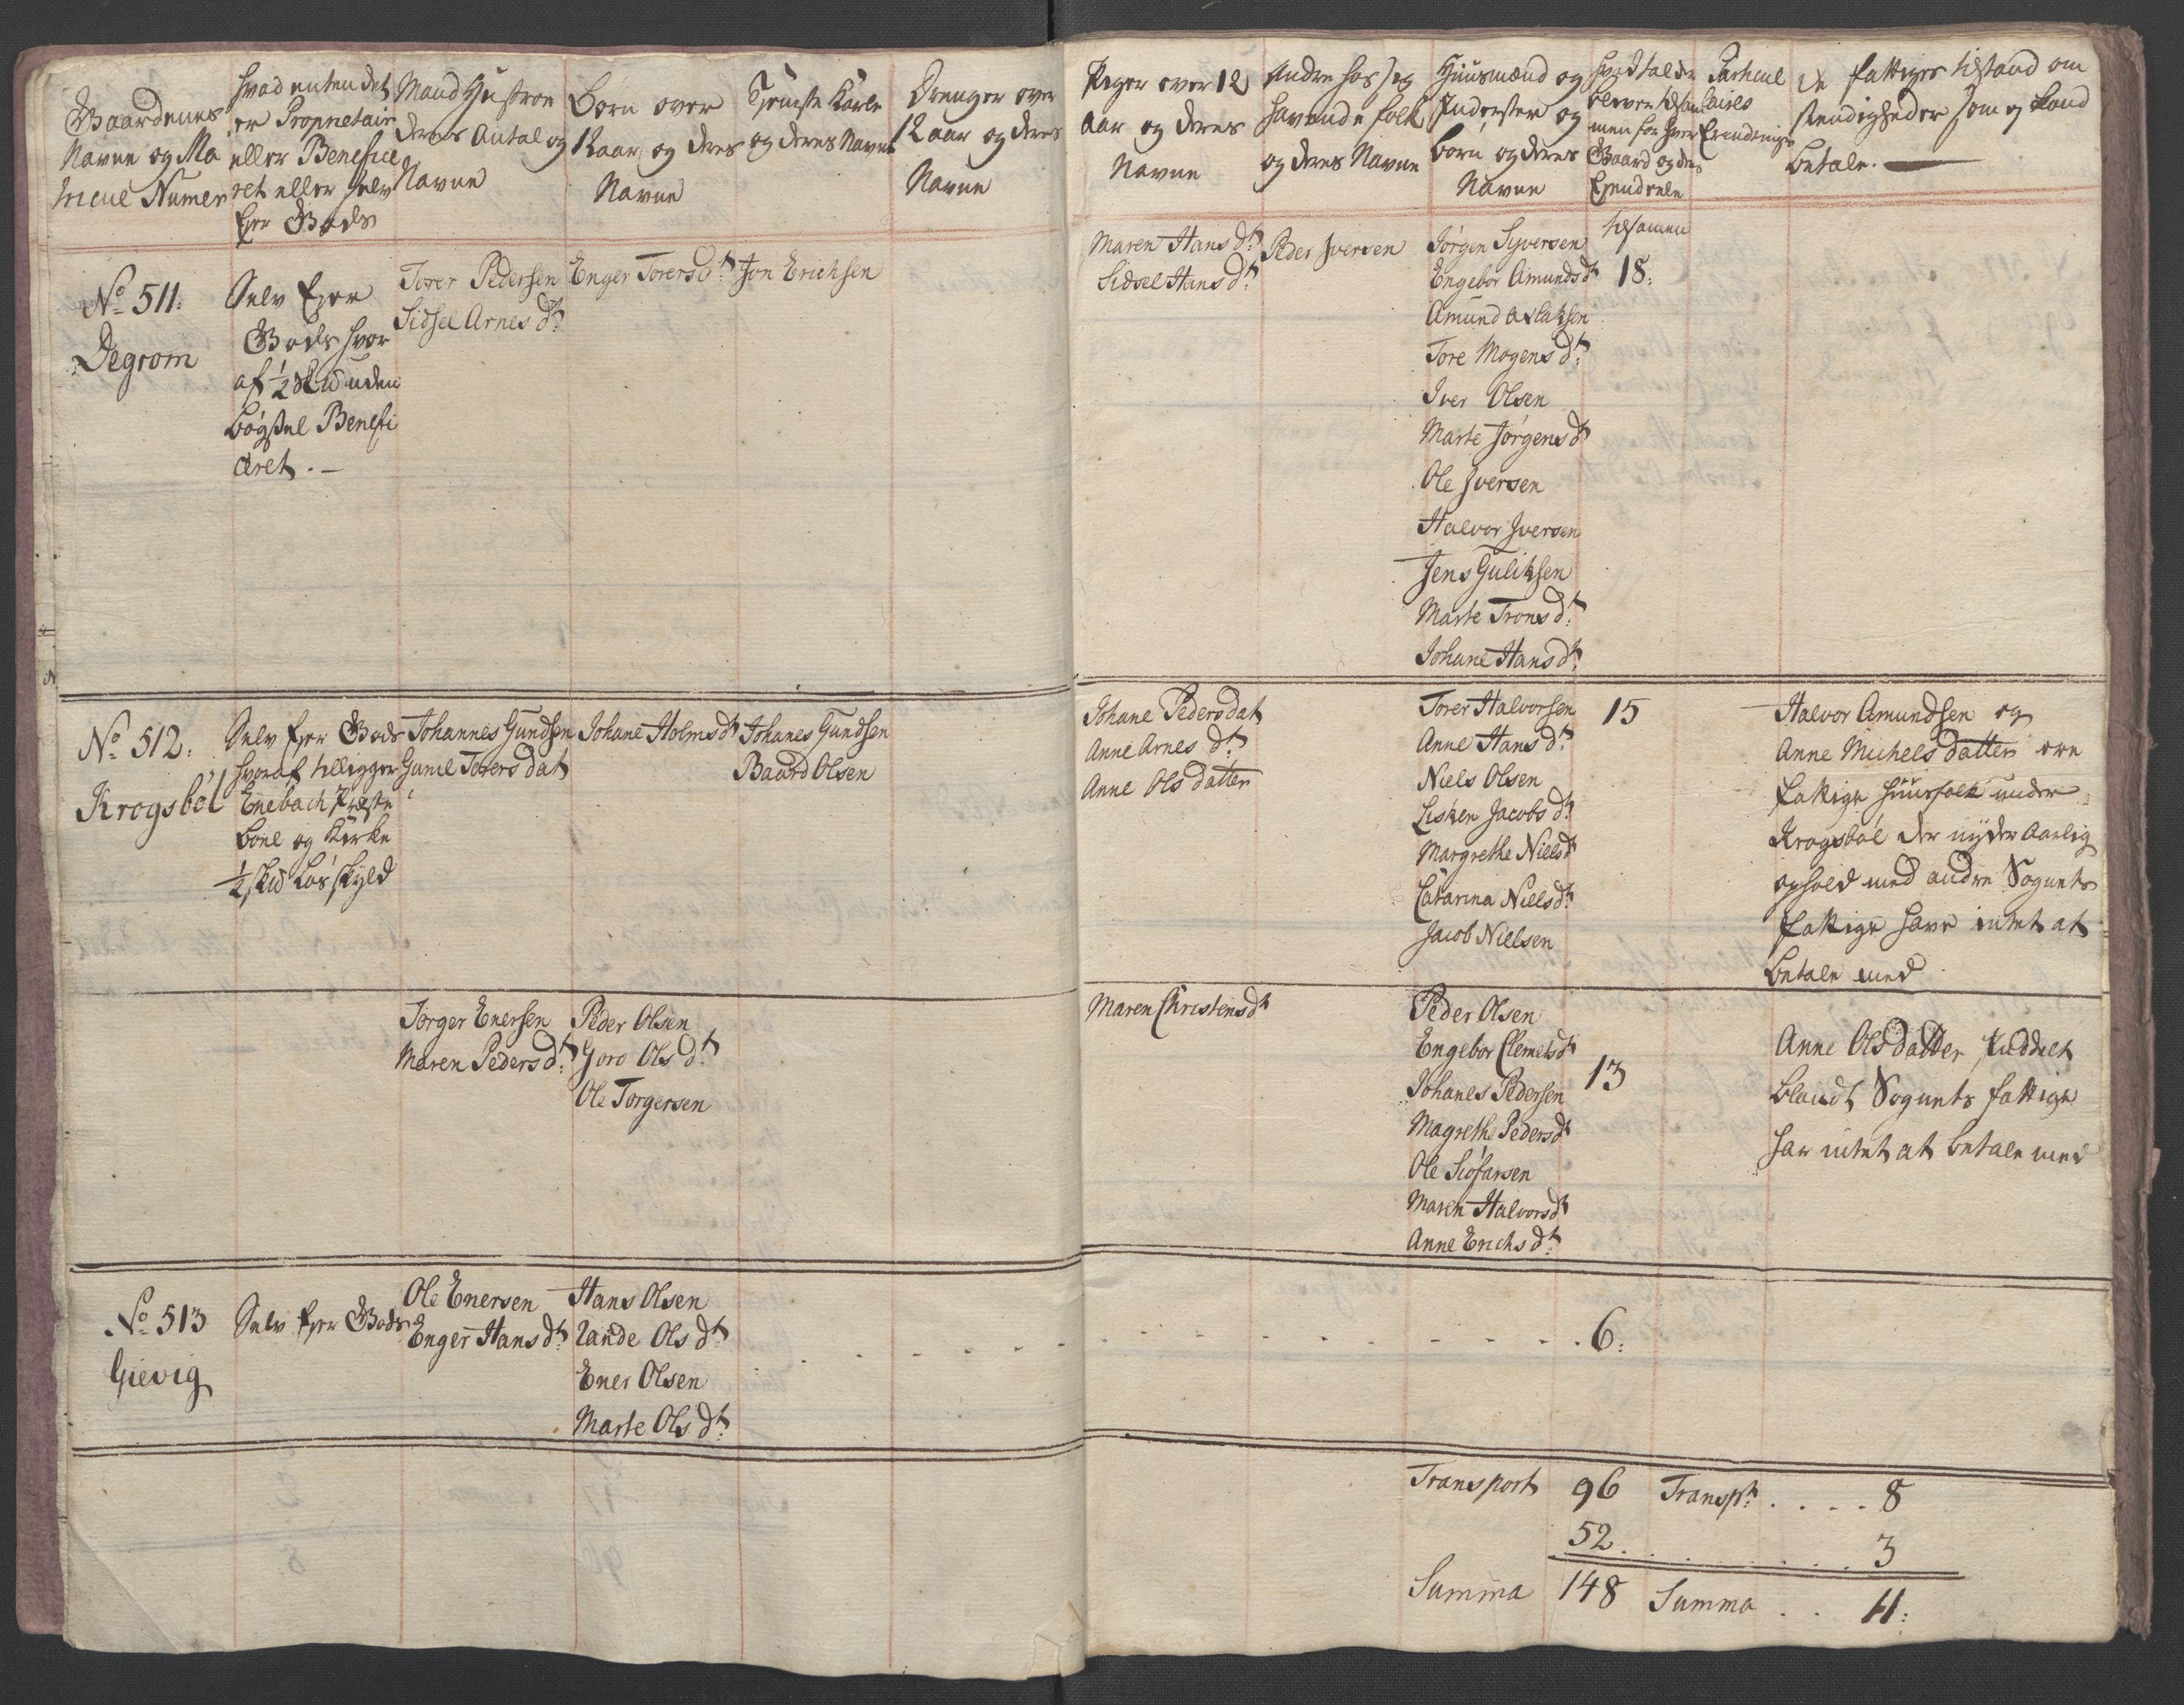 Gaardenes
Navne og Ma
tricul Numer
hvad enten det
er Proprietair
eller Benefice
ret eller Selv
Ejer Gods
Mand Hustroe
deres Antal og
Navne
Børn over
12 aar og deres
Navne
Tjeneste Karle
og deres Navne
Drenger over
12 aar og deres
Navne
Piger over 12
Aar og deres
Navne
Andre hos sig
havende folk
og deres Navne
Huusmænd og
Inderster og
børn og deres
Navne
hvad tallet
bliver tilsam
men for hver
Gaard og des
Ejendeele
tilsamen
Particul
laires
Erindringer
De fattiges tilstand om
stendigheder som og kand
betale.
No 511:
Degrom
Selv Ejer
Gods hvor
af ½ Skd uden
bøgsel Benefi
ceret.
Torer Pedersen
Sidsel Arnes dt:
Enger Torersdt:
Jon Erichsen
Maren Hans dt:
Sidsel Hans dt:
Peder Iversen
Jørgen Syversen
Engebor Amunds dt
Amund Aslaksen
Tore Mogens dt:
Iver Olsen
Marte Jørgens dt
Ole Iversen
Halvor Iversen
Jens Guliksen
Marte Trons dt:
Johane Hans dt:
18:
No 512:
Krogsbøl
Selv Ejer Gods
hvoraf tilligger
Enebach Præste
boel og Kirke
½ Skd Løs skyld
Johannes Gundsen
Gunil Torers dat
Johane Holms dt
Johanes Gundsen
Baard Olsen
Johane Peders dat
Anne Arnes dt:
Anne Ols datter
Torer Halvorsen
Anne Hans dt:
Niels Olsen
Lisken Jacobs dt:
Margrethe Niels dt
Catarina Niels dt:
Jacob Nielsen
15
Halvor Amundsen og
Anne Michels datter ere
fattige huusfolk under
Krogsbøl der nyder aarlig
ophold med andre Sognets
fattige have intet at
betale med
Torger Enersen
Maren Peders dt:
Peder Olsen
Goro Ols dt:
Ole Torgersen
Maren Christens dt
Peder Olsen
Engebor Clemets dt
Johanes Pedersen
Magrethe Peders dt
Ole Siøfarsen
Maren Halvors dt
Anne Erichs dt:
13
Anne Ols datter
blandt Sognets fattige
har intet at betale med
No 513
Gievig
Selv Ejer Gods
Ole Enersen
Enger Hans dt:
Hans Olsen
Rande Ols dt
Ener Olsen
Marte Ols dt:
6:
Transport 96 Transpt: . . . . 8
52 . . . . . . . . . . 3
Summa 148 Summa . . 11: